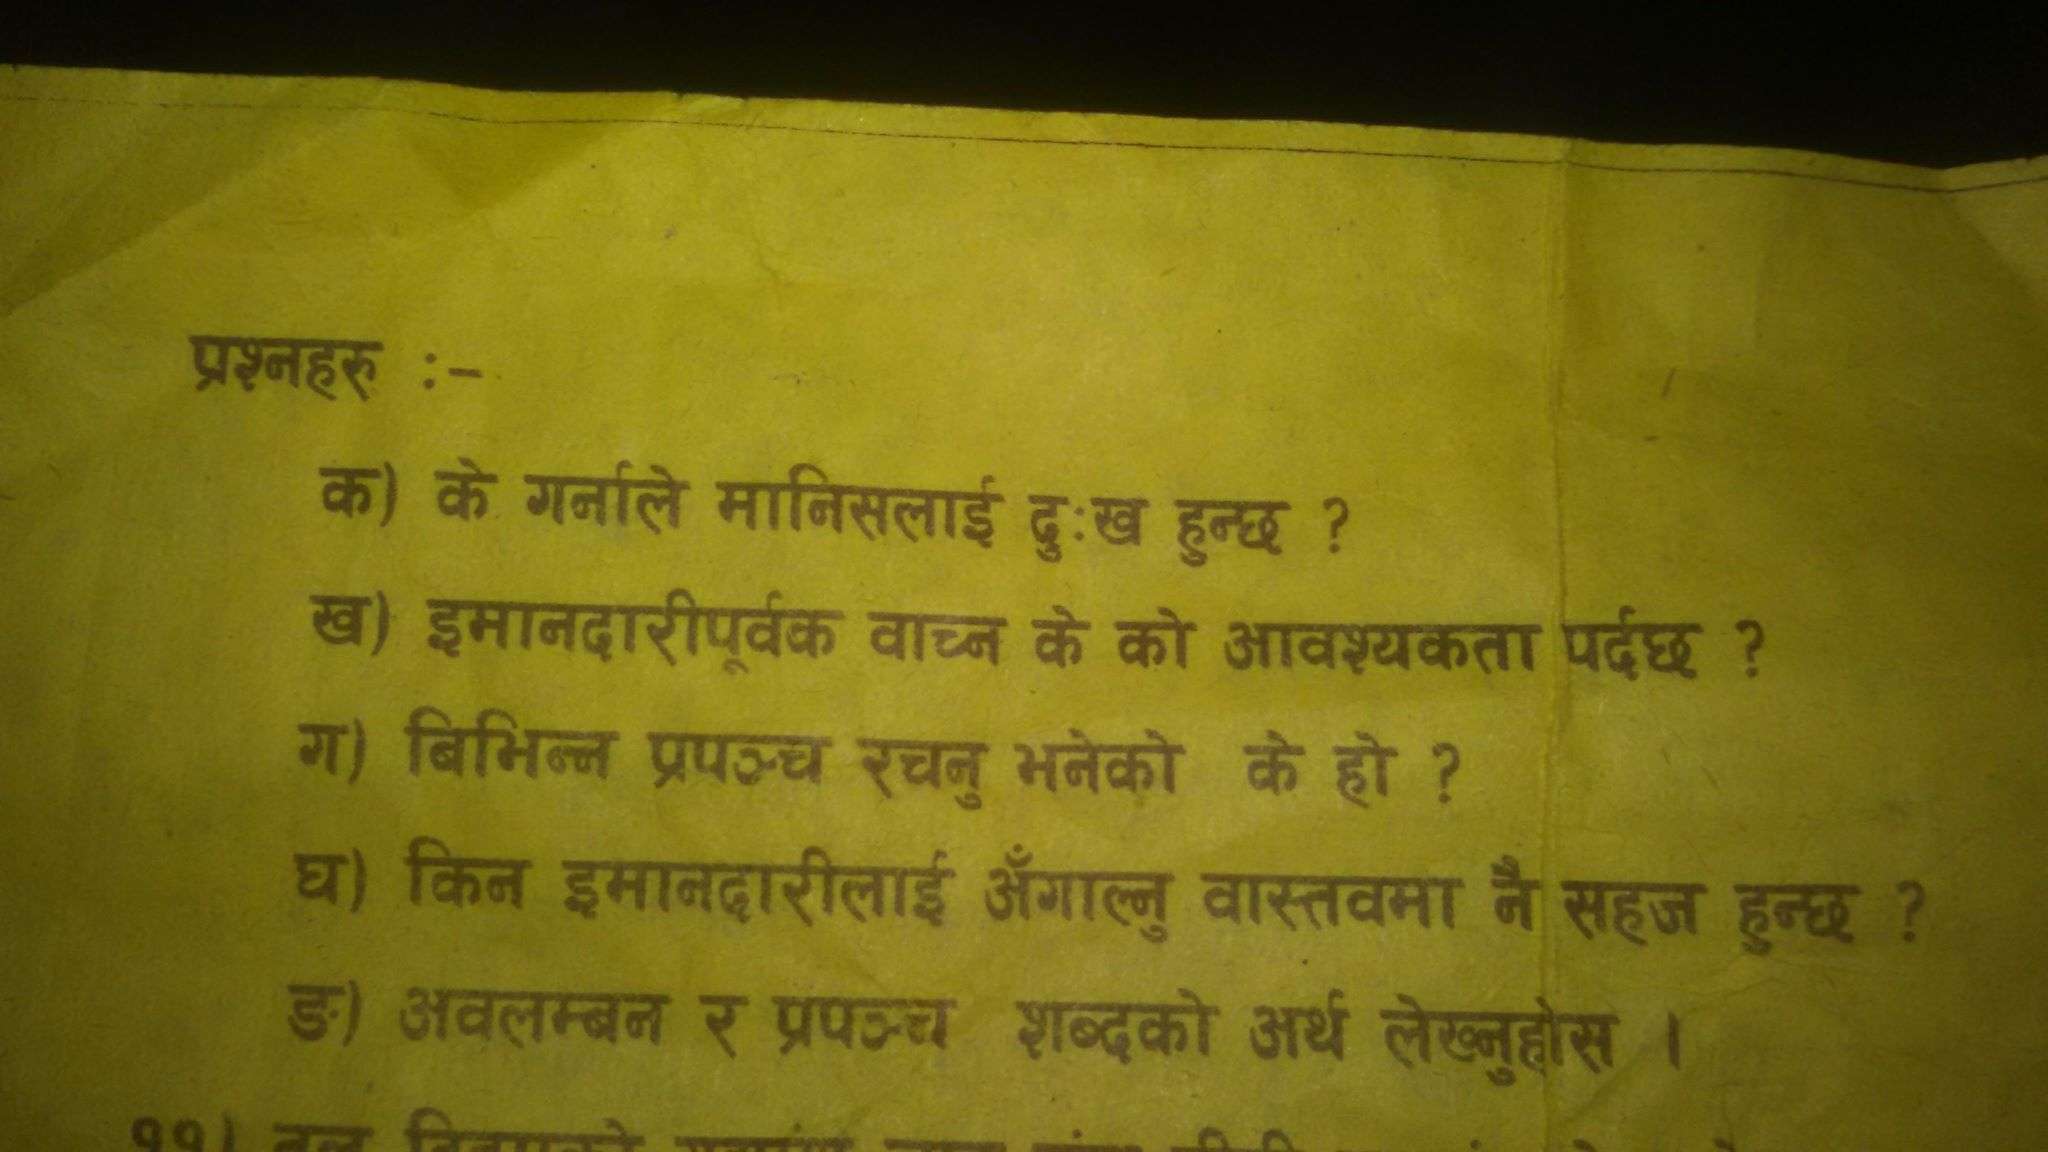 प्रश्नहरु :–
क) के गर्नाले मानिसलाई दुःख हुन्छ ?
ख) इमानदारीपूर्वक वाच्न के को आवश्यकता पर्दछ ?
ग) बिभिन्न प्रपञ्च रचनु भनेको के हो ?
घ) किन इमानदारीलाई अँगाल्नु वास्तवमा नै सहज हुन्छ ?
ङ) अवलम्बन र प्रपञ्च शब्दको अर्थ लेख्नुहोस ।
११)